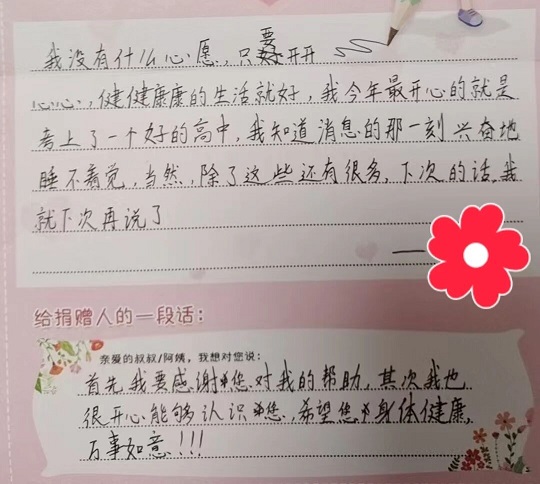 我没有什么心愿，只要开开
心心，健健康康的生活就好，我今年最开心的就是
考上了一个好的高中，我知道消息的那一刻兴奋地
睡不着觉，当然，除了这些还有很多，下次的话，我
就下次再说了
——
给捐赠人的一段话：
亲爱的叔叔/阿姨，我想对您说：
首先我要感谢您对我的帮助，其次我也
很开心能够认识您，希望您身体健康，
万事如意!!!